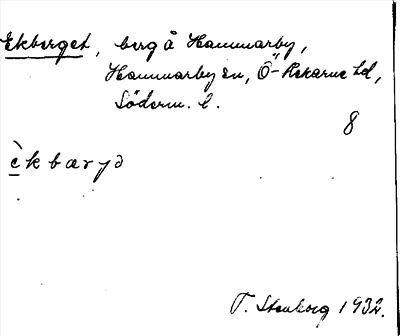 Ekberget, berg å Hammarby,
Hammarby sn, Ö-Rekarne hd,
Söderm. l.
8
èkbærjə
T. Stenborg 1932.